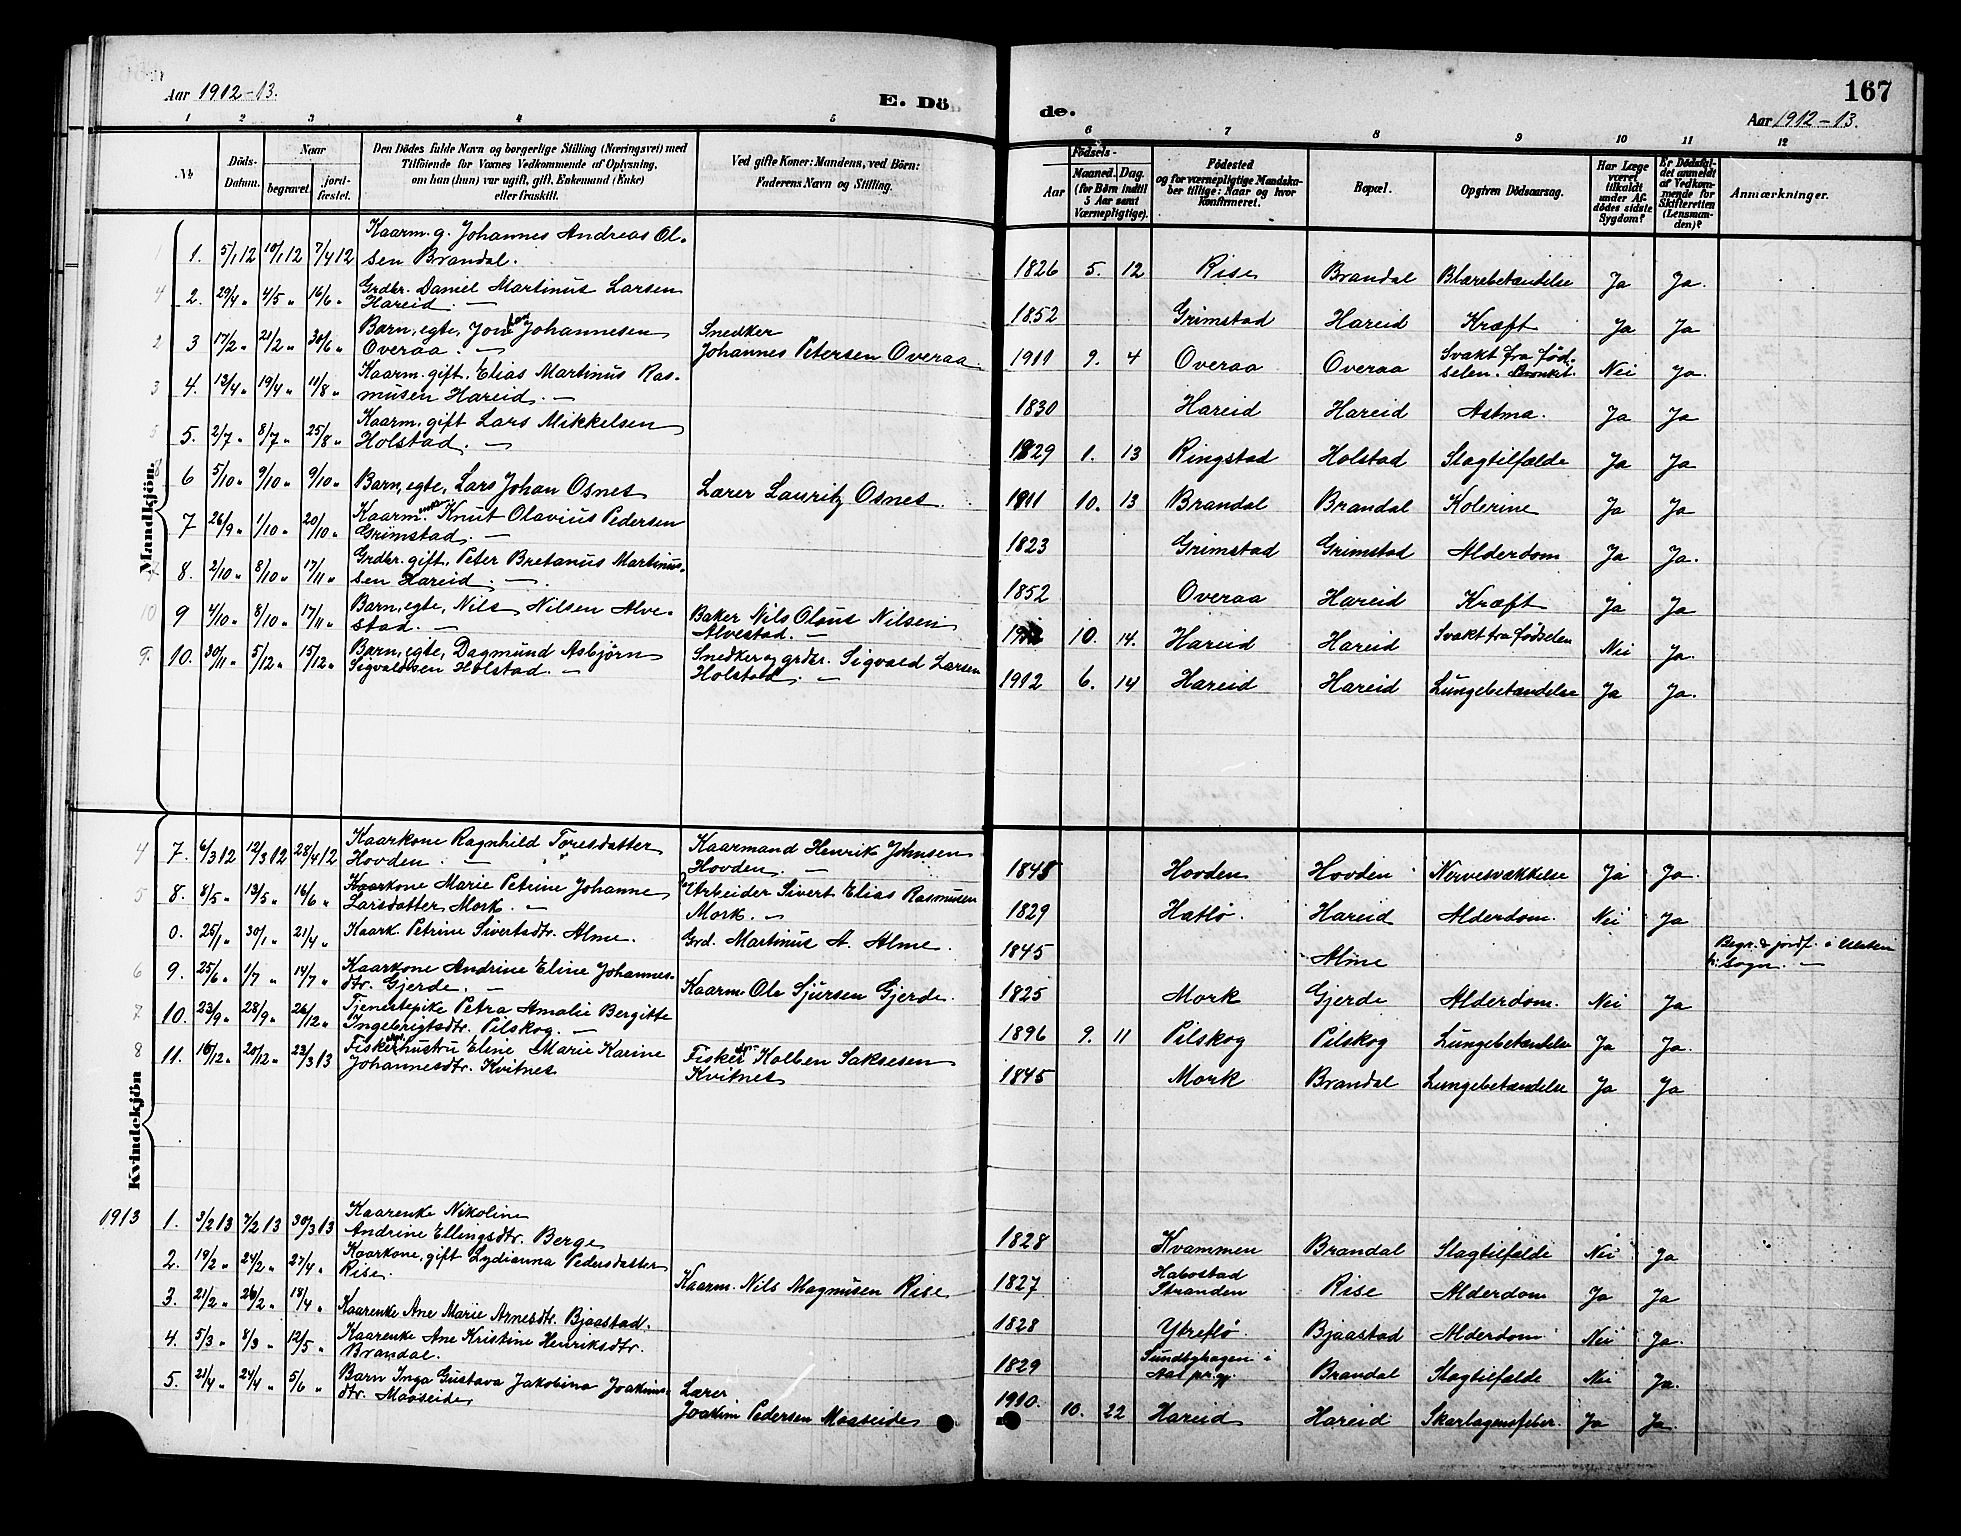 Aar 1912-13.
E. Dö
de.
167
Aar 1912-13.
1 2 3 4 5 6 7 8 9 10 11 12
No
Döds-
Datum.
Naar
begravet.
jord-
fæstet.
Den Dödes fulde Navn og borgerlige Stilling (Næringsvei) med
Tilföiende for Voxnes Vedkommende af Oplysning,
om han (hun) var ugift, gift, Enkemand (Enke)
eller fraskilt.
Ved gifte Koner: Mandens, ved Börn:
Faderens Navn og Stilling.
Födsels-
Aar
Maaned. Dag.
(for Börn indtil
5 Aar samt
Værnepligtige).
Födested
og for værnepligtige Mandska-
ber tillige: Naar og hvor
Konfirmeret.
Bopæl.
Opgiven Dödsaarsag.
Har Læge
været
tilkaldt
under Af-
dödes sidste
Sygdom?
Er Dödsfal-
det anmeldt
af Vedkom-
mende for
Skifteretten
(Lensman-
den)?
Anmærkninger.
Mandkjön.
1. 5/1 12 10/1 12 7/4 12 Kaarm. g. Johannes Andreas Ol-
sen Brandal. 1826 5. 12 Rise Brandal Blærebetændelse Ja Ja.
2. 29/4 " 4/5 " 16/6 " Grdbr. Daniel Martinus Larsen
Hareid. — 1852 Grimstad Hareid Kræft Ja Ja
3 17/2 " 21/2 " 30/6 " Barn, egte, Jon Johannesen
Overaa. — Snedker
Johannes Petersen Overaa. 1911 9. 4 Overaa Overaa Svakt fra fød-
selen. Bronkit. Nei Ja.
4. 13/4 " 19/4 " 11/8 " Kaarm. gift, Elias Martinus Ras-
musen Hareid. — 1830 Hareid Hareid Astma. Ja Ja
5. 2/7 " 8/7 " 25/8 " Kaarm. gift Lars Mikkelsen
Holstad. — 1829 1. 13 Ringstad Holstad Slagtilfælde Ja Ja
6 5/10 " 9/10 " 9/10 " Barn, egte, Lars Johan Osnes Lærer Lauritz Osnes. 1911 10. 13 Brandal Brandal Kolerine Ja Ja
7 26/9 " 1/10 " 20/10 " Kaarm. enke Knut Olavius Pedersen
Grimstad. — 1823 Grimstad Grimstad Alderdom Ja Ja.
8. 2/10 " 8/10 " 17/11 " Grdbr. gift, Peter Bretanus Martinus-
sen Hareid. — 1852 Overaa Hareid Kræft Ja Ja
9 4/10 " 8/10 " 17/11 " Barn, egte, Nils Nilsen Alve-
stad. — Baker Nils Olaus Nilsen
Alvestad. — 10. 14. Hareid Hareid Svakt fra fødselen Nei Ja.
10. 30/11 " 5/12 " 15/12 " Barn, egte, Dagmund Asbjørn
Sigvaldsen Holstad. — Snedker og grdbr. Sigvald Larsen
Holstad. — 1912 6. 14 Hareid Hareid Lungebetændelse Ja Ja.
Kvindekjön
7. 6/3 12 12/3 12 28/4 12 Kaarkone Ragnhild Toresdatter
Hovden. — Kaarmand Henrik Johnsen
Hovden. — 1845 Hovden Hovden Nervesvækkelse Ja Ja.
8. 8/5 " 13/5 " 16/6 " Kaarkone Marie Petrine Johanne
Larsdatter Mork. — Arbeider Sivert Elias Rasmusen
Mork. — 1829 Hatlø. Hareid Alderdom. Nei Ja
0. 25/1 " 30/1 " 21/4 " Kaark. Petrine Sivertsdtr. Alme. Grd. Martinus A. Alme. 1845 Alme Begr. & jordf. i Ulsten
sogn. —
9. 25/6 " 1/7 " 14/7 " Kaarkone Andrine Eline Johannes-
dtr. Gjerde. — Kaarm. Ole Sjursen Gjerde. 1825 Mork Gjerde Alderdom. Nei Ja
10. 23/9 " 28/9 " 26/12 " Tjenestepike Petra Amalie Bergitte
Ingebrigtsdtr. Pilskog. — 1896 9. 11 Pilskog Pilskog Lungebetændelse Ja Ja.
11. 16/12 " 20/12 " 23/3 13 Fiskerhustru Eline Marie Karine
Johannesdtr. Kvitnes Fisker Kolben Saksesen
Kvitnes 1845 Mork Brandal Lungebetændelse Ja Ja
1913
1. 3/2 13 7/2 13 30/3 13 Kaarenke Nikoline
Andrine Ellingsdtr. Berge 1828 Kvammen Brandal Slagtilfælde Nei Ja
2. 19/2 " 24/2 " 27/4 " Kaarkone, gift Lydianna Pedersdatter
Rise. Kaarm. Nils Magnusen Rise 1827 Habostad
Stranden Rise Alderdom Ja Ja
3. 21/2 " 26/2 " 18/4 " Kaarenke Ane Marie Arnesdtr. Bjaastad. 1828 Ytreflø. Bjaastad Alderdom Nei Ja.
4. 5/3 " 8/3 " 12/5 " Kaarenke Ane Kristine Henriksdtr.
Brandal. 1829 Sundbyhagen i
Aal pr.gj. Brandal Slagtilfælde Nei Ja.
5. 21/4 " 24/4 " 5/6 " Barn Inga Gustava Jakobina Joakims-
dtr. Maaseide Lærer
Joakim Pedersen Maaseide 1910. 10. 22 Hareid Hareid Skarlagensfeber. Ja Ja.